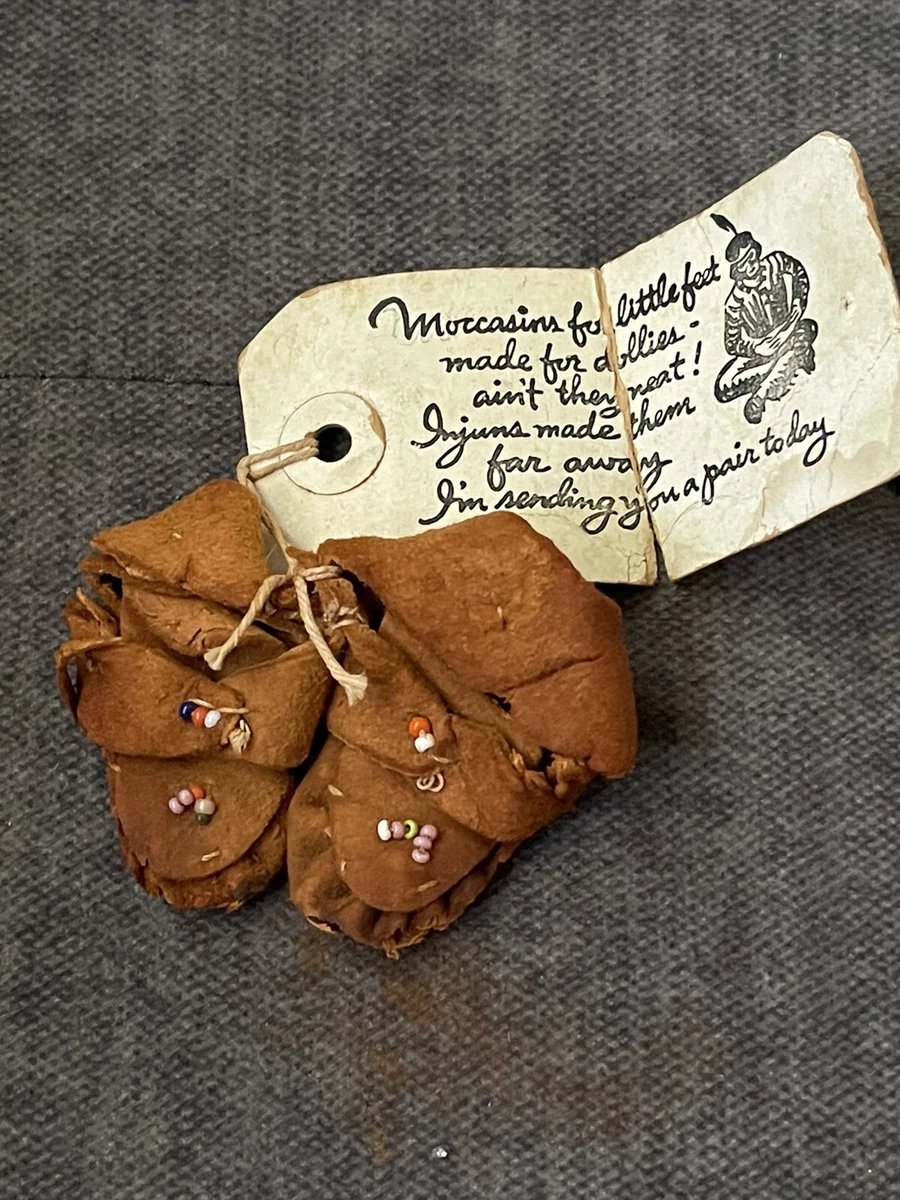 Moccasins for little feet
made for dollies -
ain't they neat!
Injuns made them
far away
I'm sending you a pair today